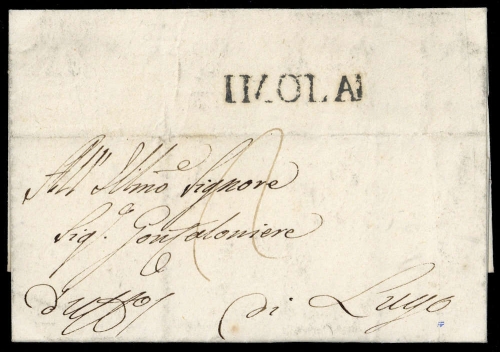 IMOLA
All' Illmo Signore
Sigr. Gonfaloniere
di Lugo